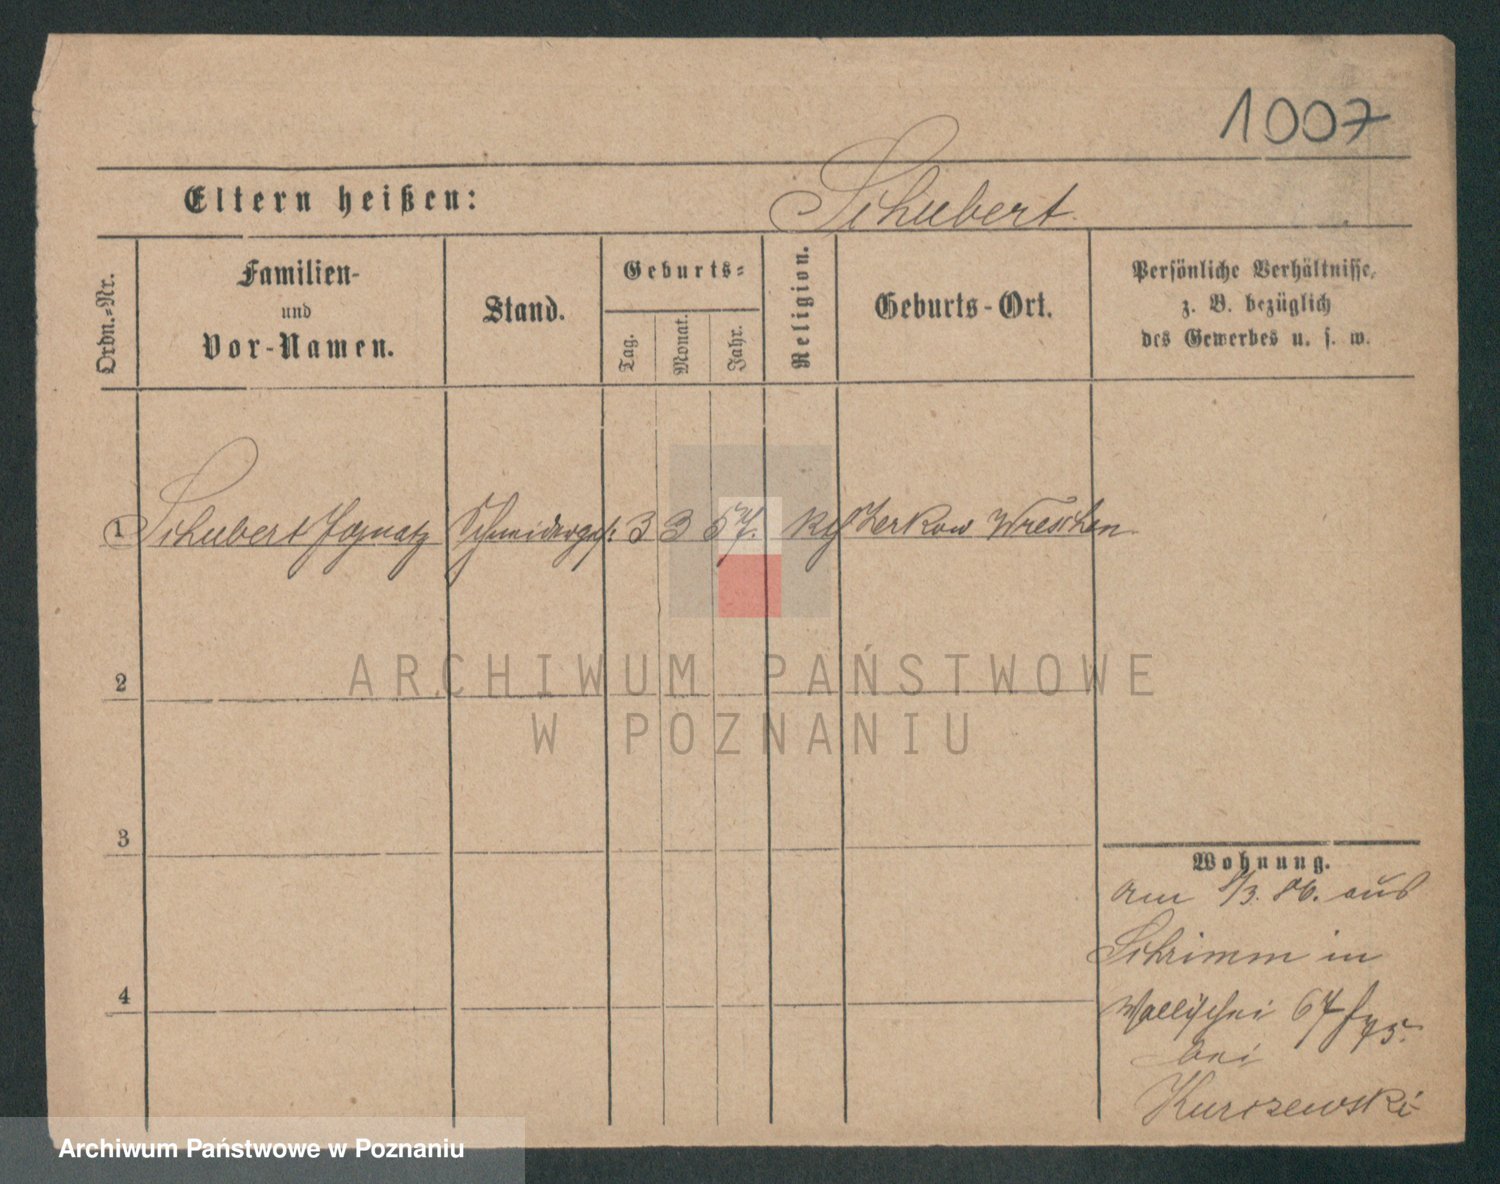 1007
Eltern heißen: Schubert
Ordn.-Nr.
Familien-
und
Vor-Namen.
Stand.
Geburts-
Tag.
Monat.
Jahr.
Religion.
Geburts-Ort.
Persönliche Verhältnisse,
z. B. bezüglich
des Gewerbes u. s. w.
1 Schubert Ignatz Schneiderges. 3 3 57. kth Zerkow Wreschen
2
3
4
Wohnung.
am 8/3. 86. aus
Schrimm in
Wallischei 67
bei
Kurczewski
ARCHIWUM PAŃSTWOWE
W POZNANIU
Archiwum Państwowe w Poznaniu